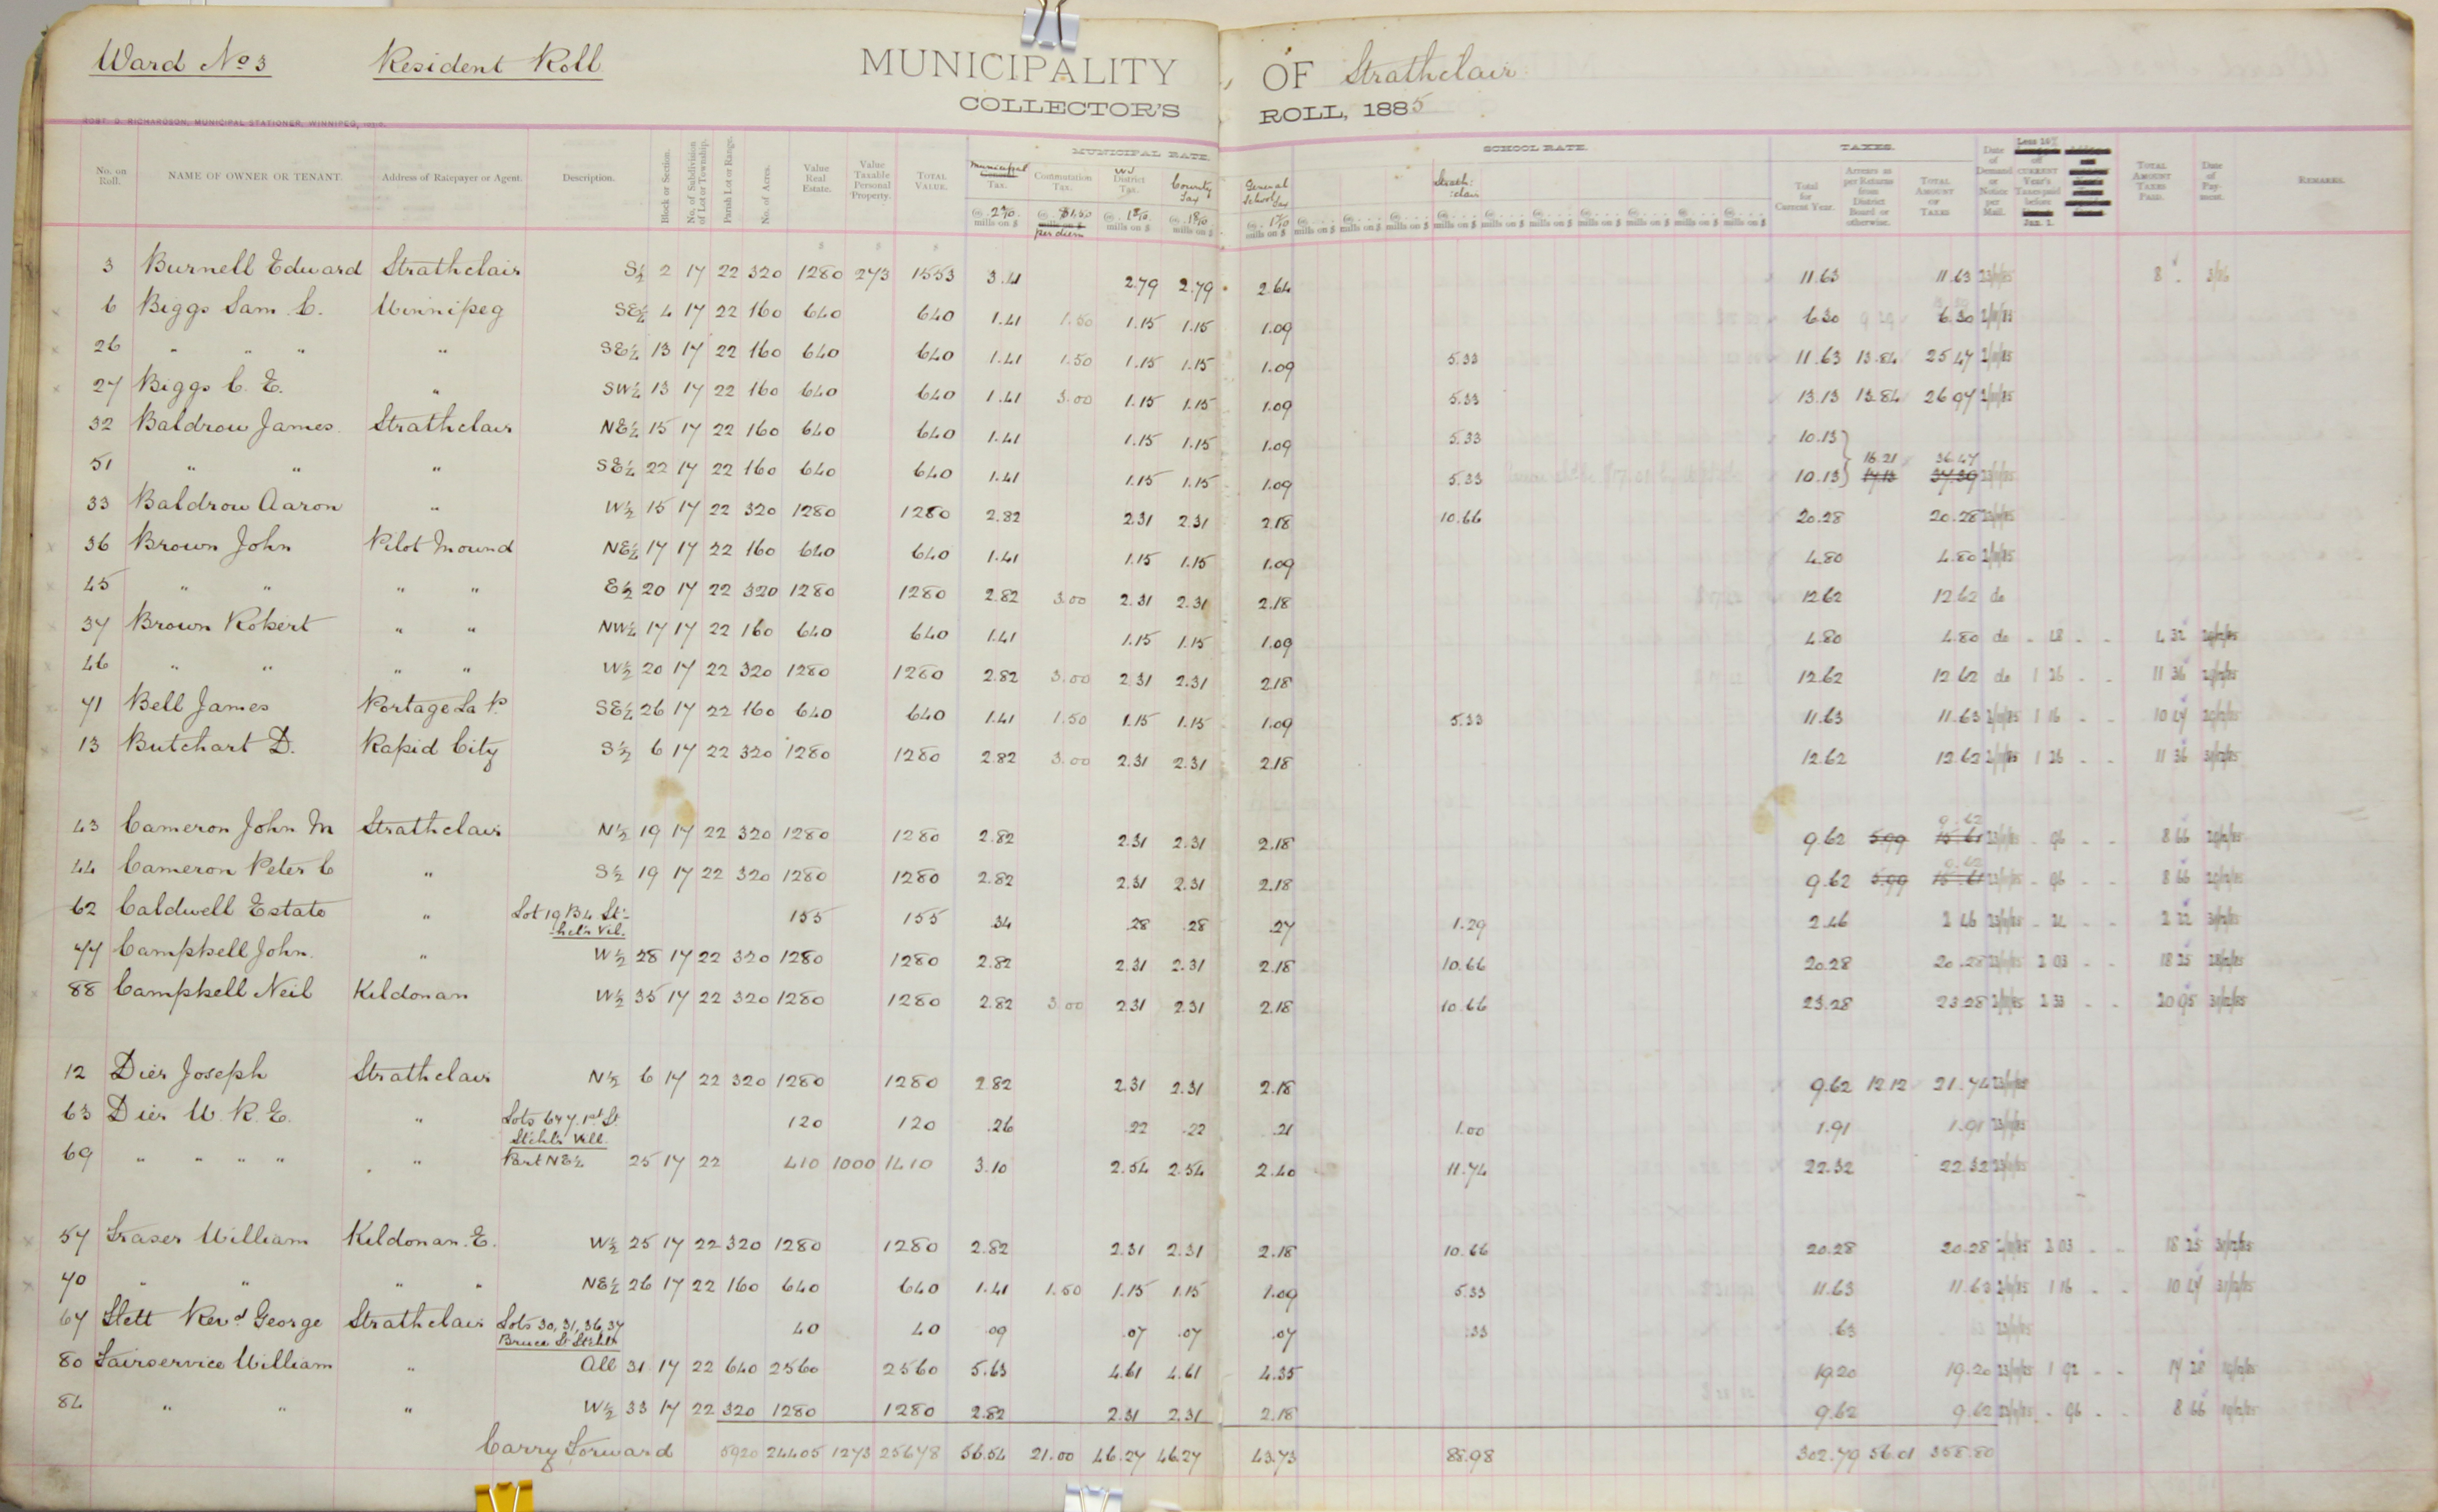 Ward No 3 Resident Roll MUNICIPALITY OF Strathclair
COLLECTOR'S ROLL, 1885
ROBT. D. RICHARDSON, MUNICIPAL STATIONER, WINNIPEG,
MUNICIPAL RATE. SCHOOL RATE. TAXES.
No. on Roll. NAME OF OWNER OR TENANT. Address of Ratepayer or Agent. Description. Block or Section. No. of Subdivision of Lot or Township. Parish Lot or Range. No. of Acres. Value Real Estate. Value Taxable Personal Property. TOTAL VALUE. Municipal Tax. Commutation Tax. District Tax. County Tax General School Tax Strathclair Total for Current Year. Arrears as per Returns from District Board or otherwise. TOTAL AMOUNT OF TAXES Date of Demand or Notice per Mail. Less 10% off CURRENT Year's Taxes paid before Jan. 1. TOTAL AMOUNT TAXES PAID. Date of Payment. REMARKS.
@ 2 2/10 mills on $ @ $1.50 per diem @ 1 8/10 mills on $ @ 1 8/10 mills on $ @ 1 7/10 mills on $ @ mills on $ @ mills on $ @ mills on $ @ mills on $ @ mills on $ @ mills on $ @ mills on $ @ mills on $ @ mills on $ @ mills on $
3 Burnell Edward Strathclair S½ 2 17 22 320 1280 273 1553 3.41 2.79 2.79 2.64 11.63 11.63 8
6 Biggs Sam. C. Winnipeg SE¼ 4 17 22 160 640 640 1.41 1.50 1.15 1.15 1.09 6.30 6.30
26 " " " " SE¼ 13 17 22 160 640 640 1.41 1.50 1.15 1.15 1.09 5.33 11.63 13.84 25.47
27 Biggs C. E. " SW¼ 13 17 22 160 640 640 1.41 3.00 1.15 1.15 1.09 5.33 13.13 13.84 26.97
32 Baldrow James Strathclair NE¼ 15 17 22 160 640 640 1.41 1.15 1.15 1.09 5.33 10.13
51 " " " SE¼ 22 17 22 160 640 640 1.41 1.15 1.15 1.09 5.33 10.13 16.21 17.13 36.47 37.39
33 Baldrow Aaron " W½ 15 17 22 320 1280 1280 2.82 2.31 2.31 2.18 10.66 20.28 20.28
36 Brown John Pilot Mound NE¼ 17 17 22 160 640 640 1.41 1.15 1.15 1.09 4.80 4.80
45 " " " " E½ 20 17 22 320 1280 1280 2.82 3.00 2.31 2.31 2.18 12.62 12.62 do
37 Brown Robert " " NW¼ 17 17 22 160 640 640 1.41 1.15 1.15 1.09 4.80 4.80 do - 48 - - 4 32
46 " " " " W½ 20 17 22 320 1280 1280 2.82 3.00 2.31 2.31 2.18 12.62 12.62 do 1 26 - - 11 36
71 Bell James Portage La P. SE¼ 26 17 22 160 640 640 1.41 1.50 1.15 1.15 1.09 5.33 11.63 11.63 1 16 - - 10 47
13 Butchart D. Rapid City S½ 6 17 22 320 1280 1280 2.82 3.00 2.31 2.31 2.18 12.62 12.62 1 26 - - 11 36
43 Cameron John M Strathclair N½ 19 17 22 320 1280 1280 2.82 2.31 2.31 2.18 9.62 5.99 9.62 15.61 - 96 - - 8 66
44 Cameron Peter C " S½ 19 17 22 320 1280 1280 2.82 2.31 2.31 2.18 9.62 5.99 9.62 15.61 - 96 - - 8 66
62 Caldwell Estate " Lot 19 B4 St- 155 155 .34 .28 .28 .27 1.29 2.46 2 46 - 24 - - 2 22
hcl'r Vil.
77 Campbell John. " W½ 28 17 22 320 1280 1280 2.82 2.31 2.31 2.18 10.66 20.28 20.28 2 03 - - 18 25
88 Campbell Neil Kildonan W½ 35 17 22 320 1280 1280 2.82 3.00 2.31 2.31 2.18 10.66 23.28 23.28 2 33 - - 20 95
12 Dier Joseph Strathclair N½ 6 17 22 320 1280 1280 2.82 2.31 2.31 2.18 9.62 12.12 21.74
63 Dier W. R. E. " Lots 6 & 7. 1st St 120 120 .26 .22 .22 .21 1.00 1.91 1.91
Stchl'r Vill.
69 " " " " " Part NE¼ 25 17 22 410 1000 1410 3.10 2.54 2.54 2.40 11.74 22.32 22.32
57 Fraser William Kildonan. E. W½ 25 17 22 320 1280 1280 2.82 2.31 2.31 2.18 10.66 20.28 20.28 2 03 - - 18 25
70 " " " " NE¼ 26 17 22 160 640 640 1.41 1.50 1.15 1.15 1.09 5.33 11.63 11.63 1 16 - - 10 47
67 Flett Revd George Strathclair Lots 30, 31, 36, 37 40 40 .09 .07 .07 .07 .33 .63 63
Bruce St Stchlr
80 Fairservice William " All 31 17 22 640 2560 2560 5.63 4.61 4.61 4.35 19.20 19.20 1 92 - - 17 28
84 " " " W½ 33 17 22 320 1280 1280 2.82 2.31 2.31 2.18 9.62 9.62 - 96 - - 8 66
Carry Forward 5920 24405 1273 25678 56.54 21.00 46.27 46.27 43.73 88.98 302.79 56.01 358.80